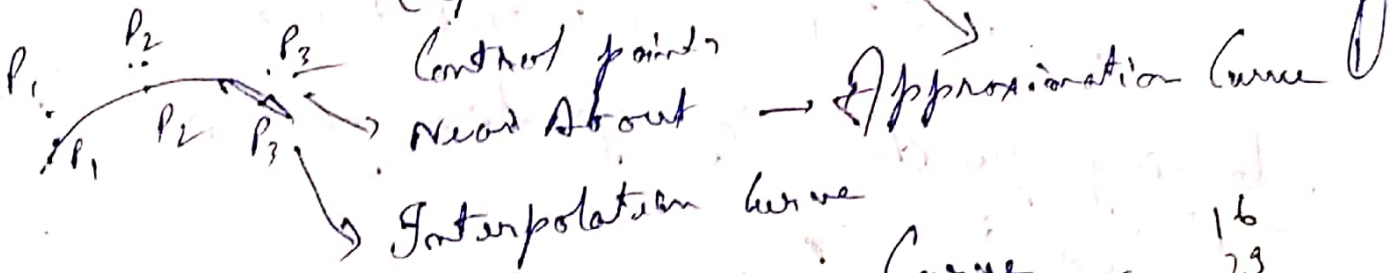 P2
P1 P3 Control points
Near About → Approximation Curve
P1 P2 P3
Interpolation Curve
Curve 16
29